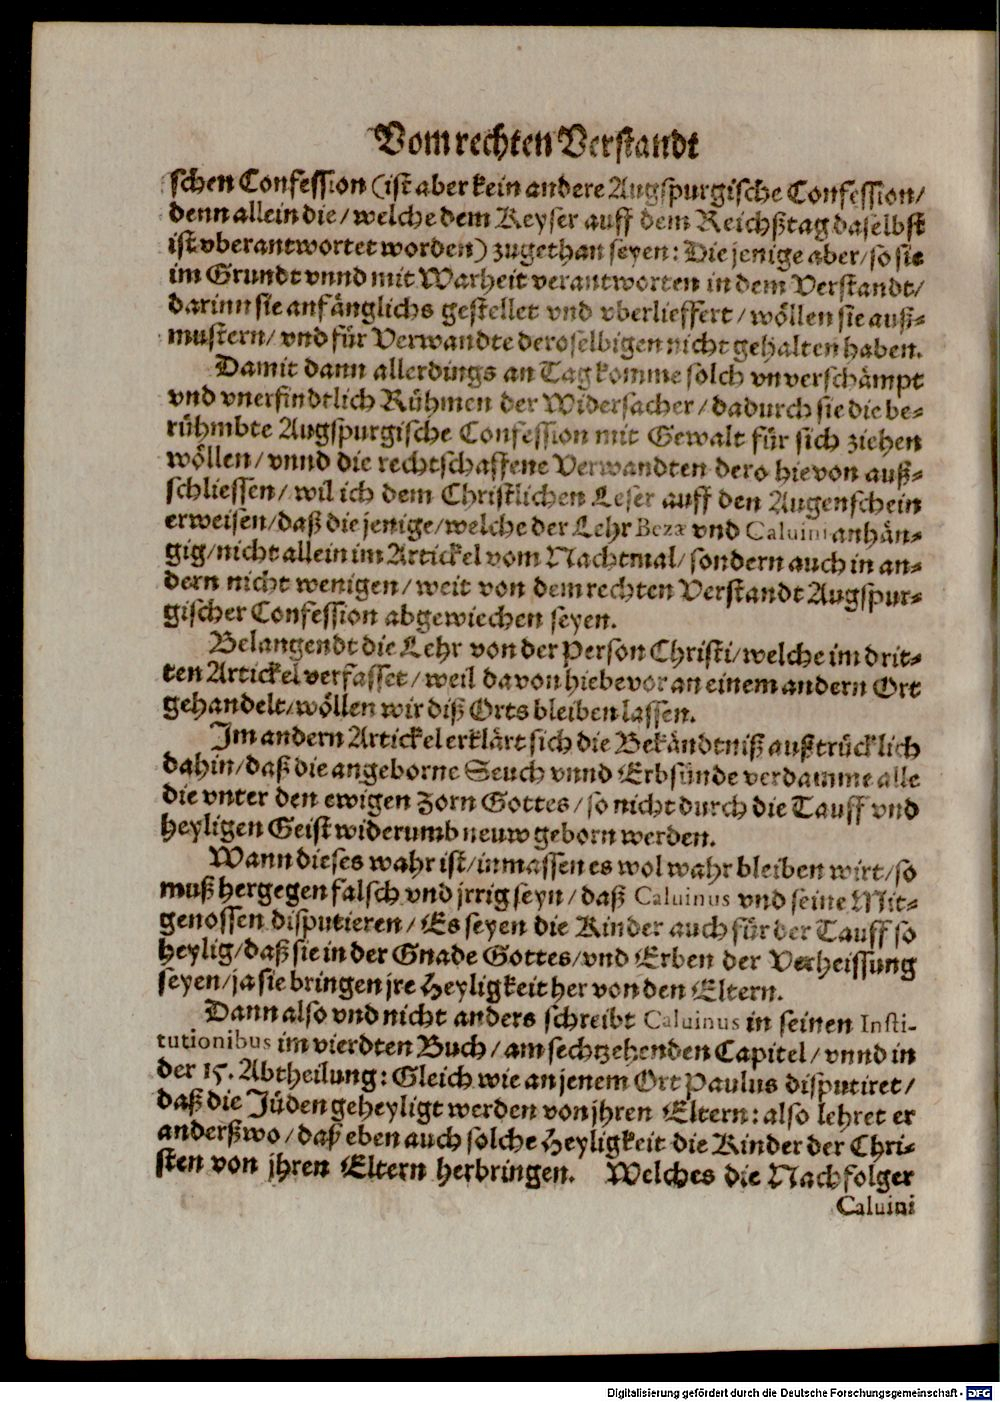 Vom rechten Verstandt
schen Confession (ist aber kein andere Augspurgische Confession/
denn allein die/ welche dem Keyser auff dem Reichßtag daselbst
ist vberantwortet worden) zugethan seyen: Die jenige aber/ so sie
im Grundt vnnd mit Warheit verantworten in dem Verstandt/
darinn sie anfänglichs gestellet vnd vberlieffert/ wöllen sie auß-
mustern/ vnd für Verwandte deroselbigen nicht gehalten haben.
Damit dann allerdings an Tag komme solch vnverschämpt
vnd vnerfindtlich Rühmen der Widersacher/ dadurch sie die be-
rühmbte Augspurgische Confession mit Gewalt für sich ziehen
wöllen/ vnnd die rechtschaffene Verwandten dero hievon auß-
schliessen/ wil ich dem Christlichen Leser auff den Augenschein
erweisen/ daß die jenige/ welche der Lehr Bezæ vnd Caluini anhän-
gig/ nicht allein im Artickel vom Nachtmal/ sondern auch in an-
dern nicht wenigen/ weit von dem rechten Verstandt Augspur-
gischer Confession abgewiechen seyen.
Belangendt die Lehr von der Person Christi/ welche im drit-
ten Artickel verfasset/ weil davon hiebevor an einem andern Ort
gehandelt/ wöllen wir diß Orts bleiben lassen.
Im andern Artickel erklärt sich die Bekändtniß außtrücklich
dahin/ daß die angeborne Seuch vnnd Erbsünde verdamme alle
die vnter den ewigen Zorn Gottes/ so nicht durch die Tauff vnd
heyligen Geist widerumb neuw geborn werden.
Wann dieses wahr ist/ inmassen es wol wahr bleiben wirt/ so
muß hergegen falsch vnd jrrig seyn/ daß Caluinus vnd seine Mit-
genossen disputieren/ Es seyen die Kinder auch für der Tauff so
heylig/ daß sie in der Gnade Gottes/ vnd Erben der Verheissung
seyen/ ja sie bringen jre Heyligkeit her von den Eltern.
Dann also vnd nicht anders schreibt Caluinus in seinen Insti-
tutionibus im vierdten Buch/ am sechtzehenden Capitel/ vnnd in
der 15. Abtheilung: Gleich wie an jenem Ort Paulus disputiret/
daß die Jüden geheyligt werden von jhren Eltern: also lehret er
anderßwo/ daß eben auch solche Heyligkeit die Kinder der Chri-
sten von jhren Eltern herbringen. Welches die Nachfolger
Caluini
Digitalisierung gefördert durch die Deutsche Forschungsgemeinschaft - DFG